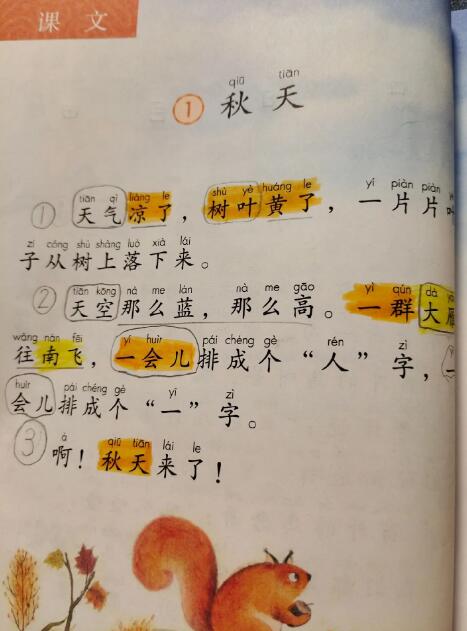 课文
qiū tiān
① 秋天
① tiān qì liáng le shù yè huáng le yí piàn piàn
天气凉了，树叶黄了，一片片叶
zi cóng shù shàng luò xià lái
子从树上落下来。
② tiān kōng nà me lán nà me gāo yì qún dà
天空那么蓝，那么高。一群大雁
wǎng nán fēi yí huìr pái chéng gè rén zì
往南飞，一会儿排成个“人”字，一
huìr pái chéng gè yī zì
会儿排成个“一”字。
③ à qiū tiān lái le
啊！秋天来了！